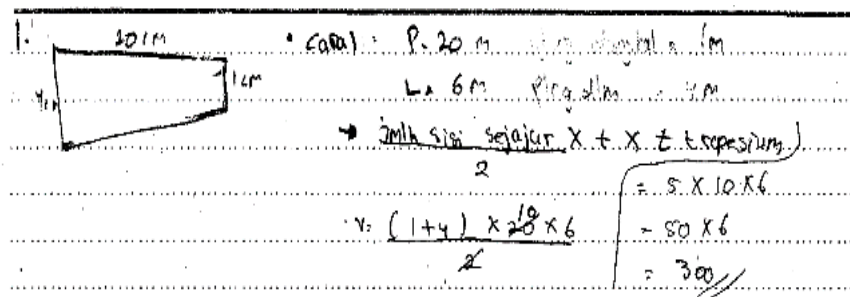 1.
20 cm
1 cm
4 cm
• Caral : P. 20 m = 1m
L = 6 m = 4m
→ Jmlh sisi sejajar X t X t trapesium
2
V = (1+4) X 20 10 X 6
2
= 5 X 10 X 6
= 50 X 6
= 300